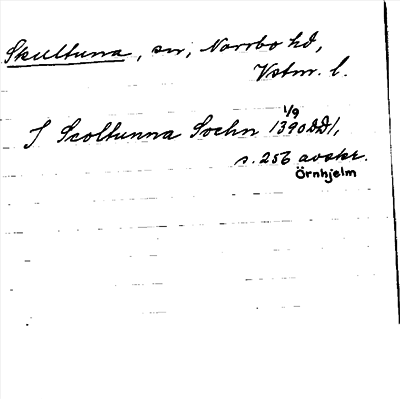 Skultuna, sn, Norrbo hd,
Vstm. l.
1/9
I Scoltunna Sochn 1390 DD1,
s. 256 avskr.
Örnhjelm